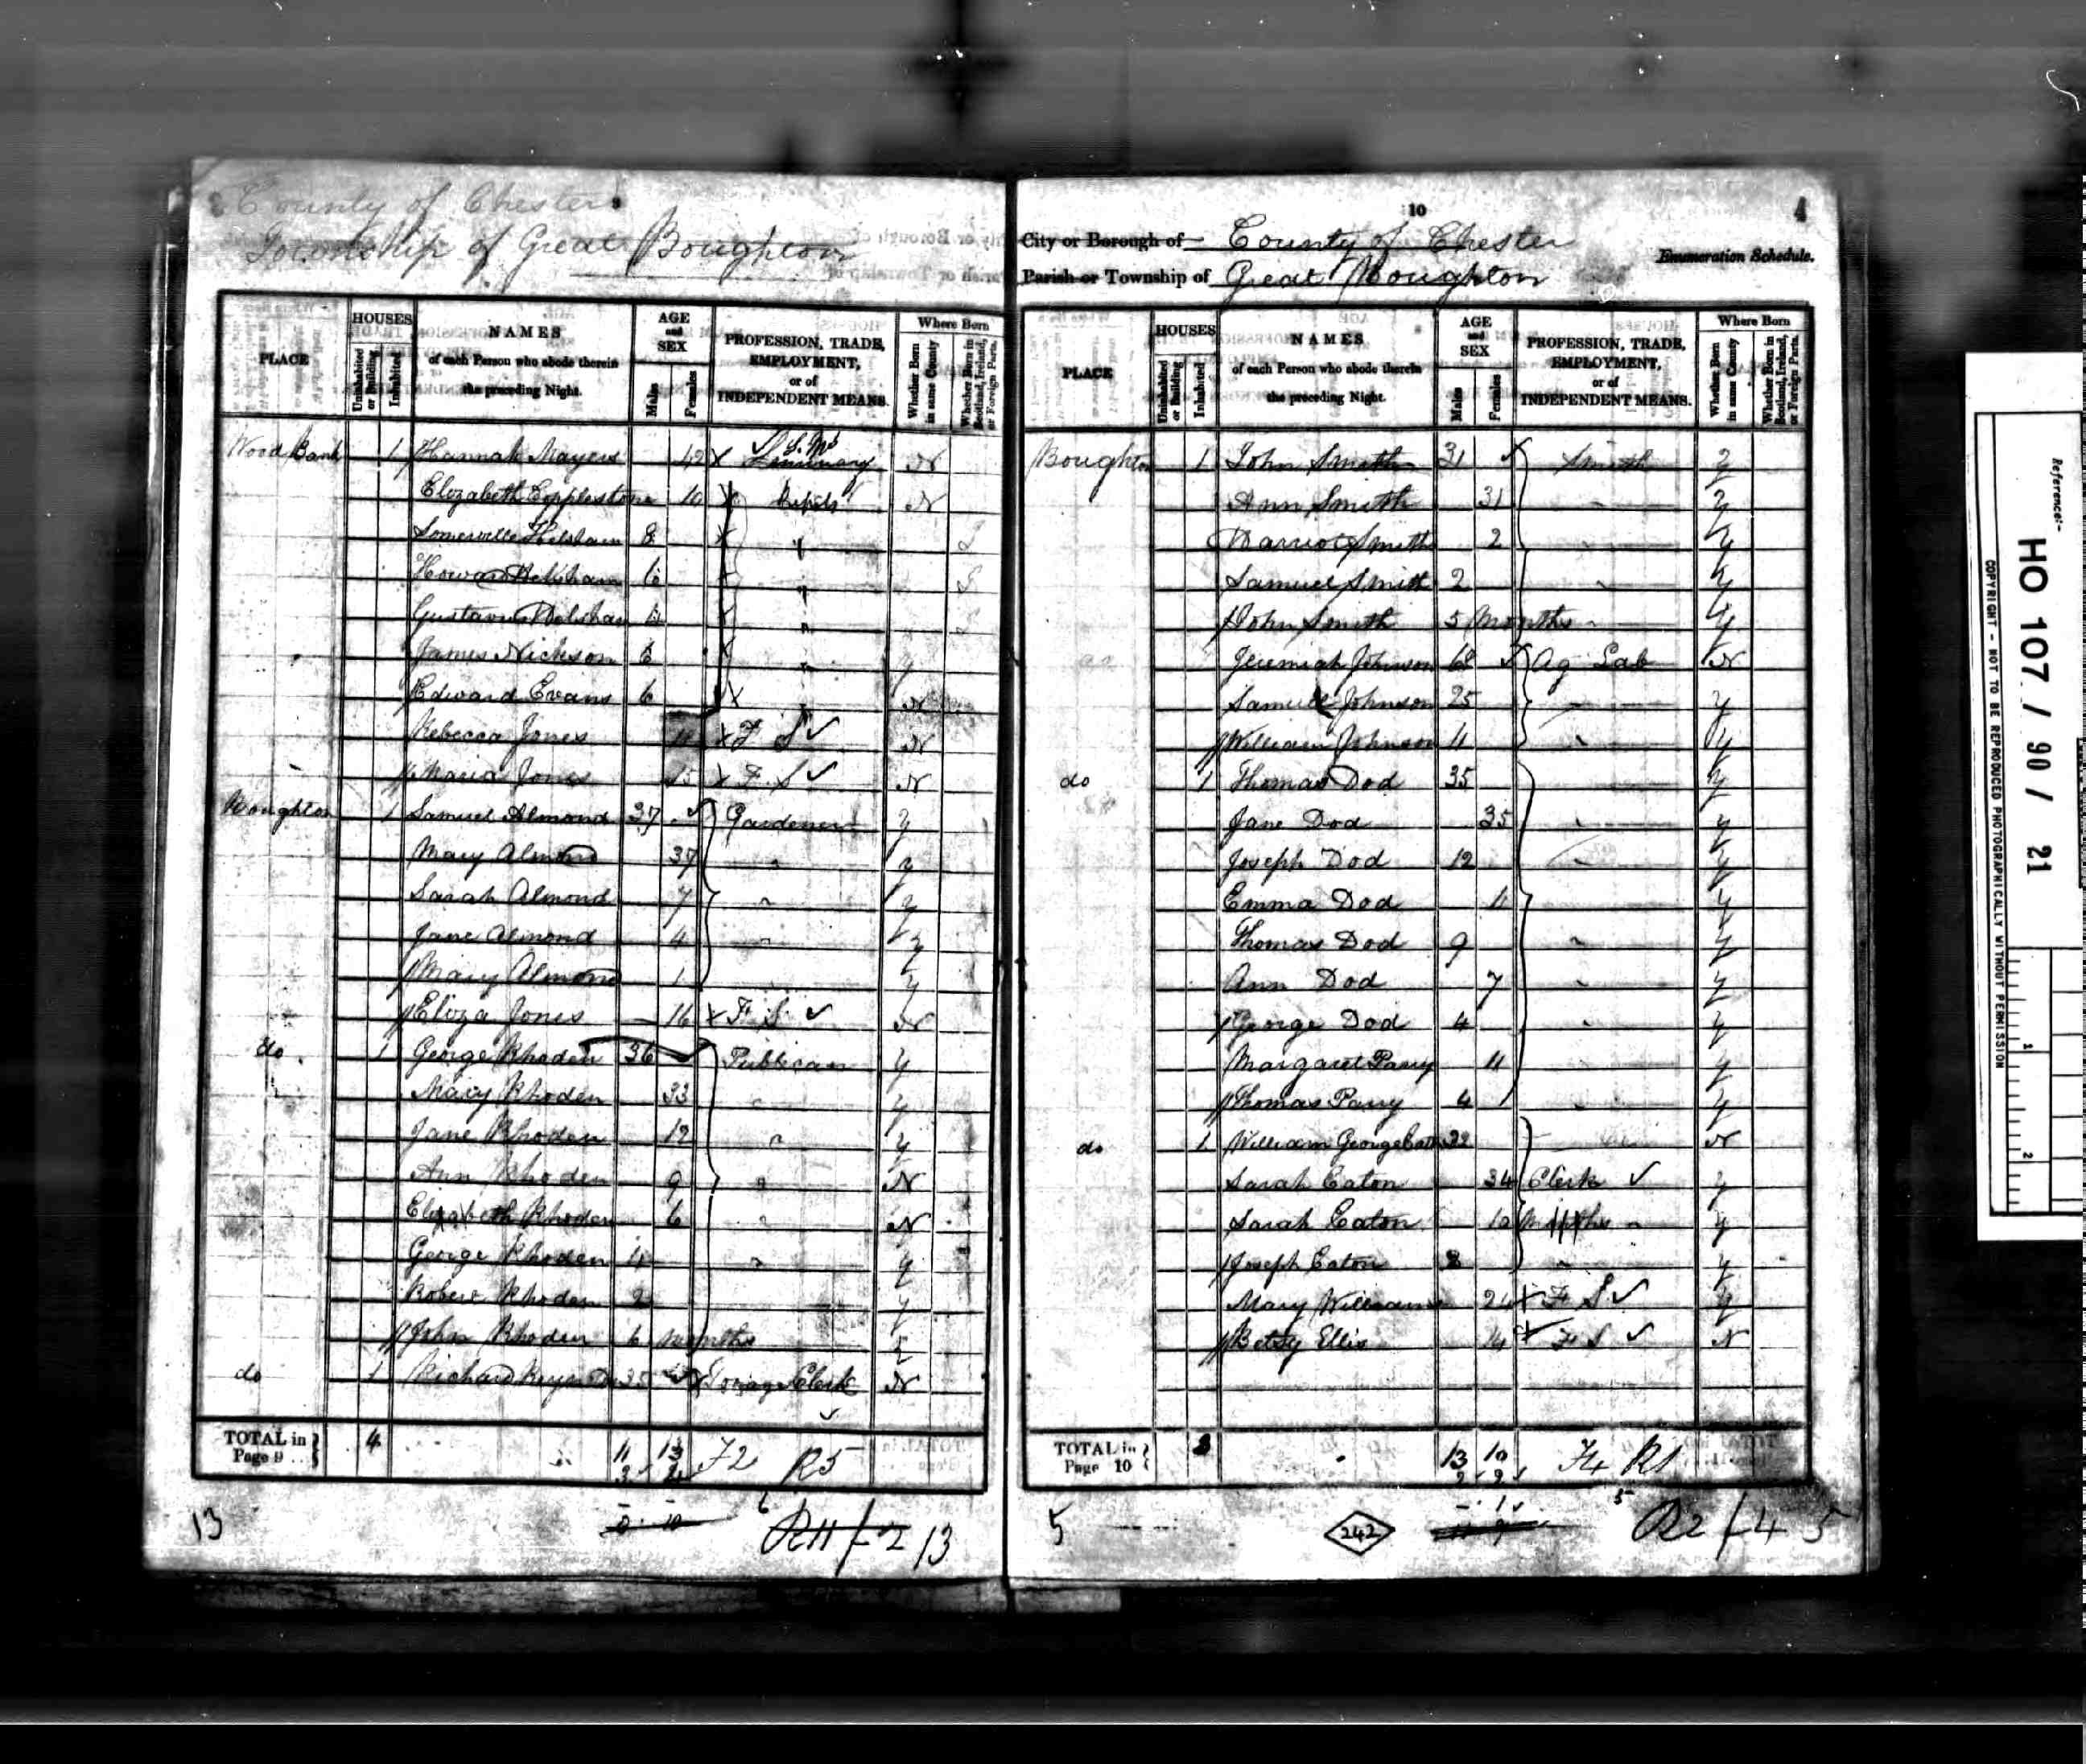 County of Chester
Township of Great Boughton
PLACE HOUSES Uninhabited or Building Inhabited NAMES of each Person who abode therein the preceding Night. AGE and SEX Males Females PROFESSION, TRADE, EMPLOYMENT, or of INDEPENDENT MEANS. Where Born Whether Born in same County Whether Born in Scotland, Ireland, or Foreign Parts.
Wood Bank 1 Hannah Mayers 42 N
Elizabeth 10 Pupils N
Somerville 8
6
Gustavus
James Nickson 6 y
Edward Evans 6 N
Rebecca Jones F S N
Maria Jones 15 F S N
Boughton 1 Samuel Almond 37 Gardener y
Mary Almond 37 " y
Sarah Almond 7 " y
Jane Almond 4 " y
Mary Almond 1 y
Eliza Jones 16 F S N
do 1 George Rhoden 36 Publican y
Mary Rhoden 33 " y
Jane Rhoden 12 " y
Ann Rhoden 9 " N
Elizabeth Rhoden 6 " N
George Rhoden 4 " y
Robert Rhoden 2 y
John Rhoden 6 months y
do 1 Richard 35 Clerk N
TOTAL in Page 9 4 11 13 F2 R5
13 R11 F2 13
10
4
City or Borough of County of Chester
Enumeration Schedule.
Parish or Township of Great Boughton
PLACE HOUSES Uninhabited or Building Inhabited NAMES of each Person who abode therein the preceding Night. AGE and SEX Males Females PROFESSION, TRADE, EMPLOYMENT, or of INDEPENDENT MEANS. Where Born Whether Born in same County Whether Born in Scotland, Ireland, or Foreign Parts.
Boughton 1 John Smith 31 Smith y
Ann Smith 31 " y
Harriot Smith 2 " y
Samuel Smith 2 " y
John Smith 5 months " y
Jeremiah Johnson Ag Lab N
Samuel Johnson 25 " y
William Johnson 11 " y
do 1 Thomas Dod 35 y
Jane Dod 35 " y
Joseph Dod 12 " y
Emma Dod 11 y
Thomas Dod 9 " y
Ann Dod 7 " y
George Dod 4 " y
Margaret Parry 11 y
Thomas Parry 4 " y
do 1 William George N
Sarah Eaton 34 Clerk y
Sarah Eaton 10 Months " y
Joseph Eaton " y
Mary Williams 24 F S y
Betsy Ellis 14 F S N
TOTAL in Page 10 3 13 10 F4 R1
5 242 R2 F4 5
Reference:-
HO 107 / 90 / 21
COPYRIGHT - NOT TO BE REPRODUCED PHOTOGRAPHICALLY WITHOUT PERMISSION
1
2